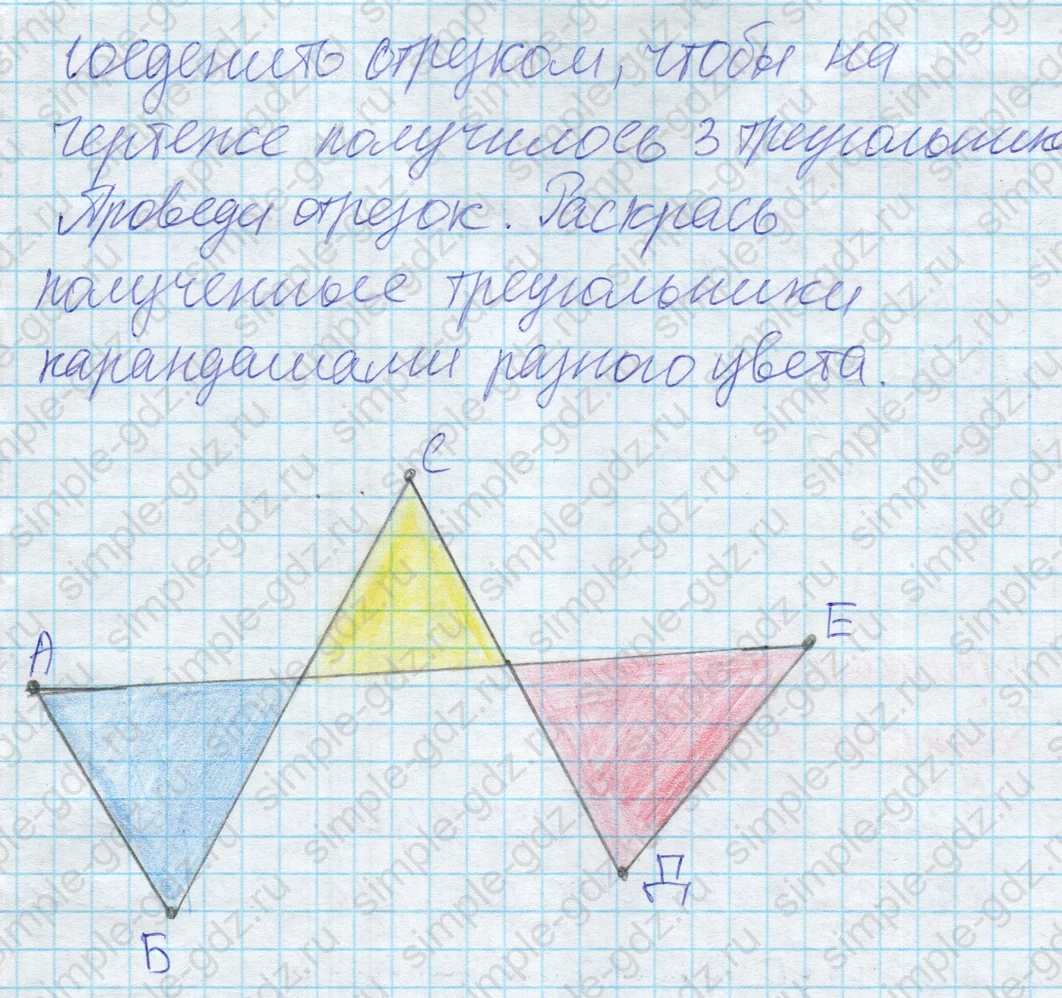 соеденить отрезком, чтобы на
чертеже получилось 3 треугольника
Проведи отрезок. Раскрась
полученные треугольники
карандашами разного цвета.
С
А
Е
Б
Д
simple-gdz.ru